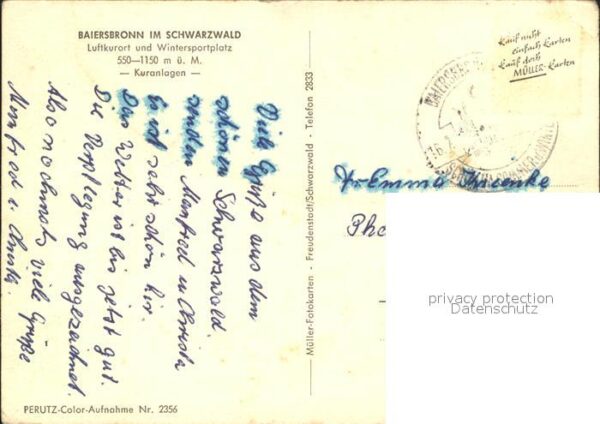 BAIERSBRONN IM SCHWARZWALD
Luftkurort und Wintersportplatz
550—1150 m ü. M.
— Kuranlagen —
Viele Grüße aus dem
schönen Schwarzwald.
senden Manfred u. Christa
Es ist sehr schön hir.
Das Wetter ist bis jetzt gut.
Die Verpflegung ausgezeichnet.
Also nochmals viele Grüße
Manfred u. Christa.
PERUTZ-Color-Aufnahme Nr. 2356
Müller-Fotokarten - Freudenstadt/Schwarzwald - Telefon 2833
Kauf nicht
einfach Karten
Kauf doch
MÜLLER-Karten
Fr Emma
privacy protection
Datenschutz